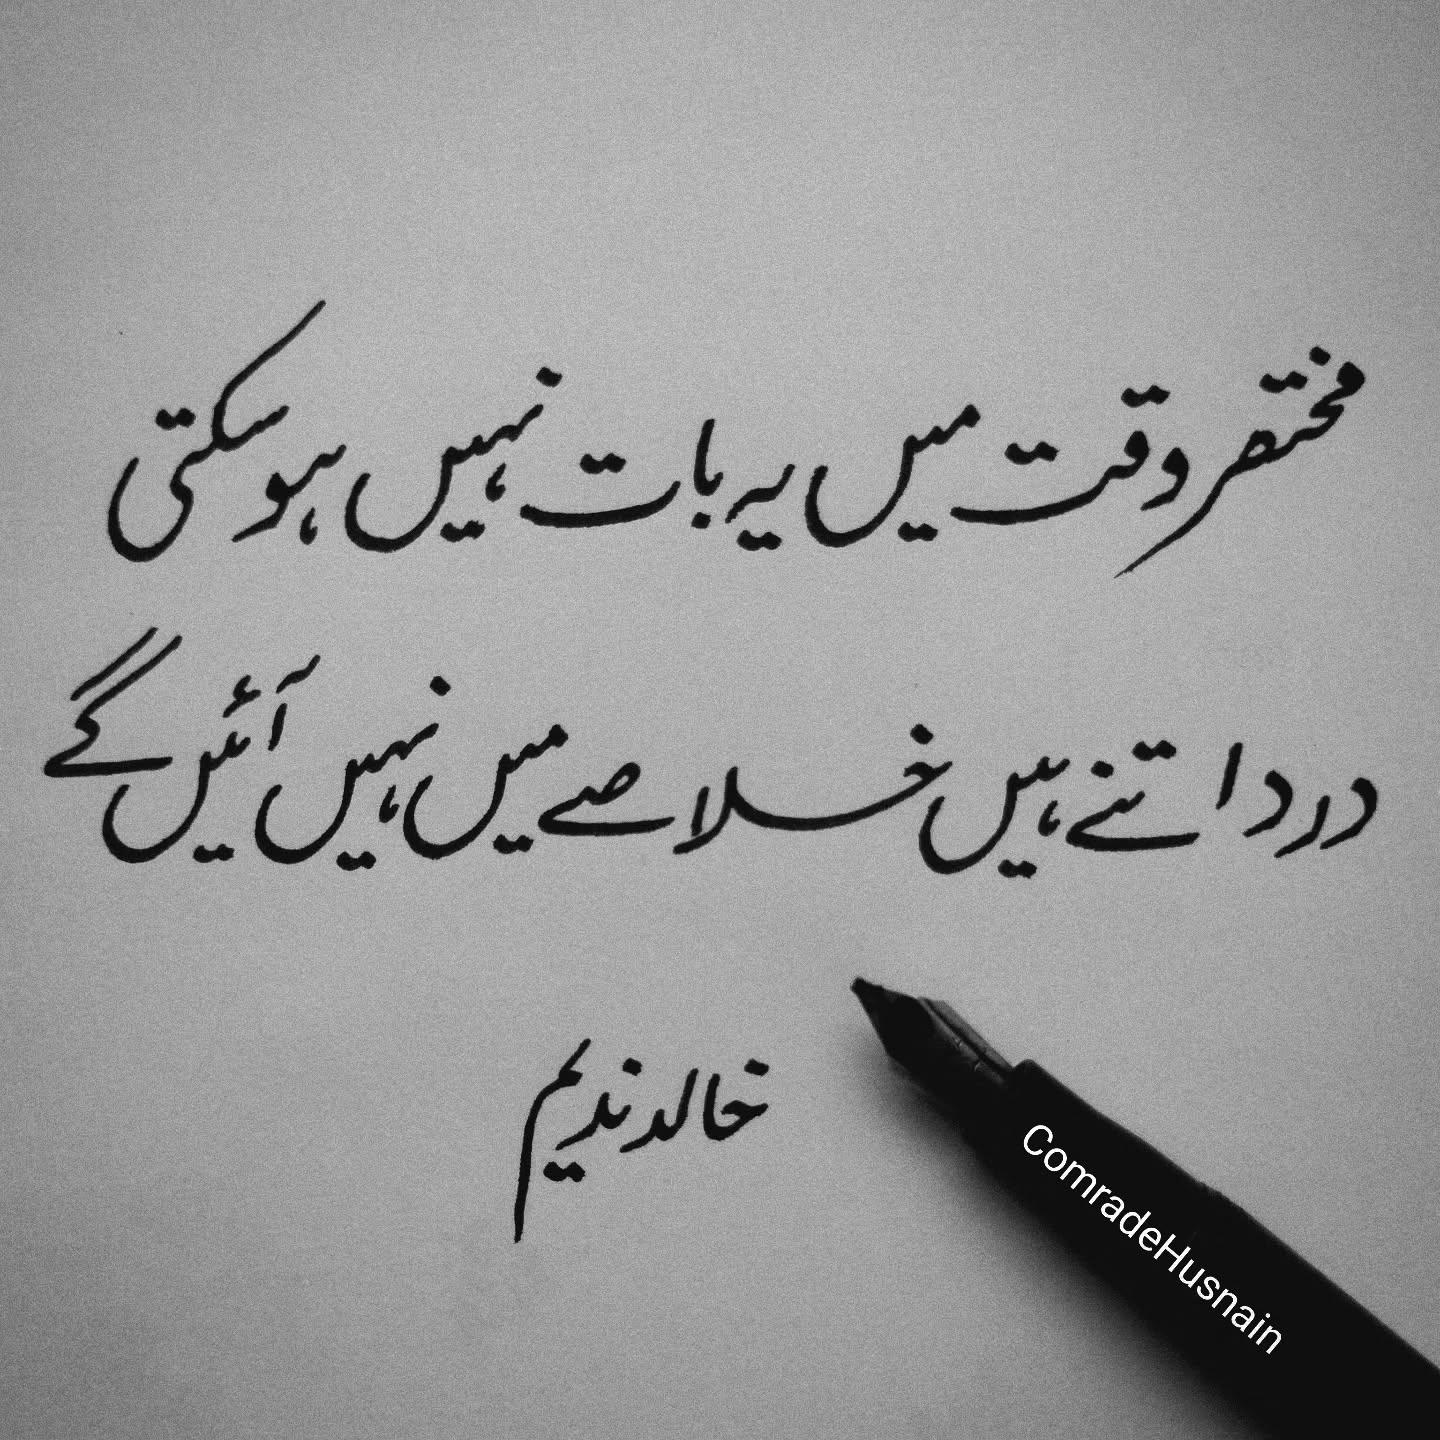 مختصر وقت میں یہ بات نہیں ہو سکتی
درد اتنے ہیں خلاصے میں نہیں آئیں گے
خالد ندیم
ComradeHusnain